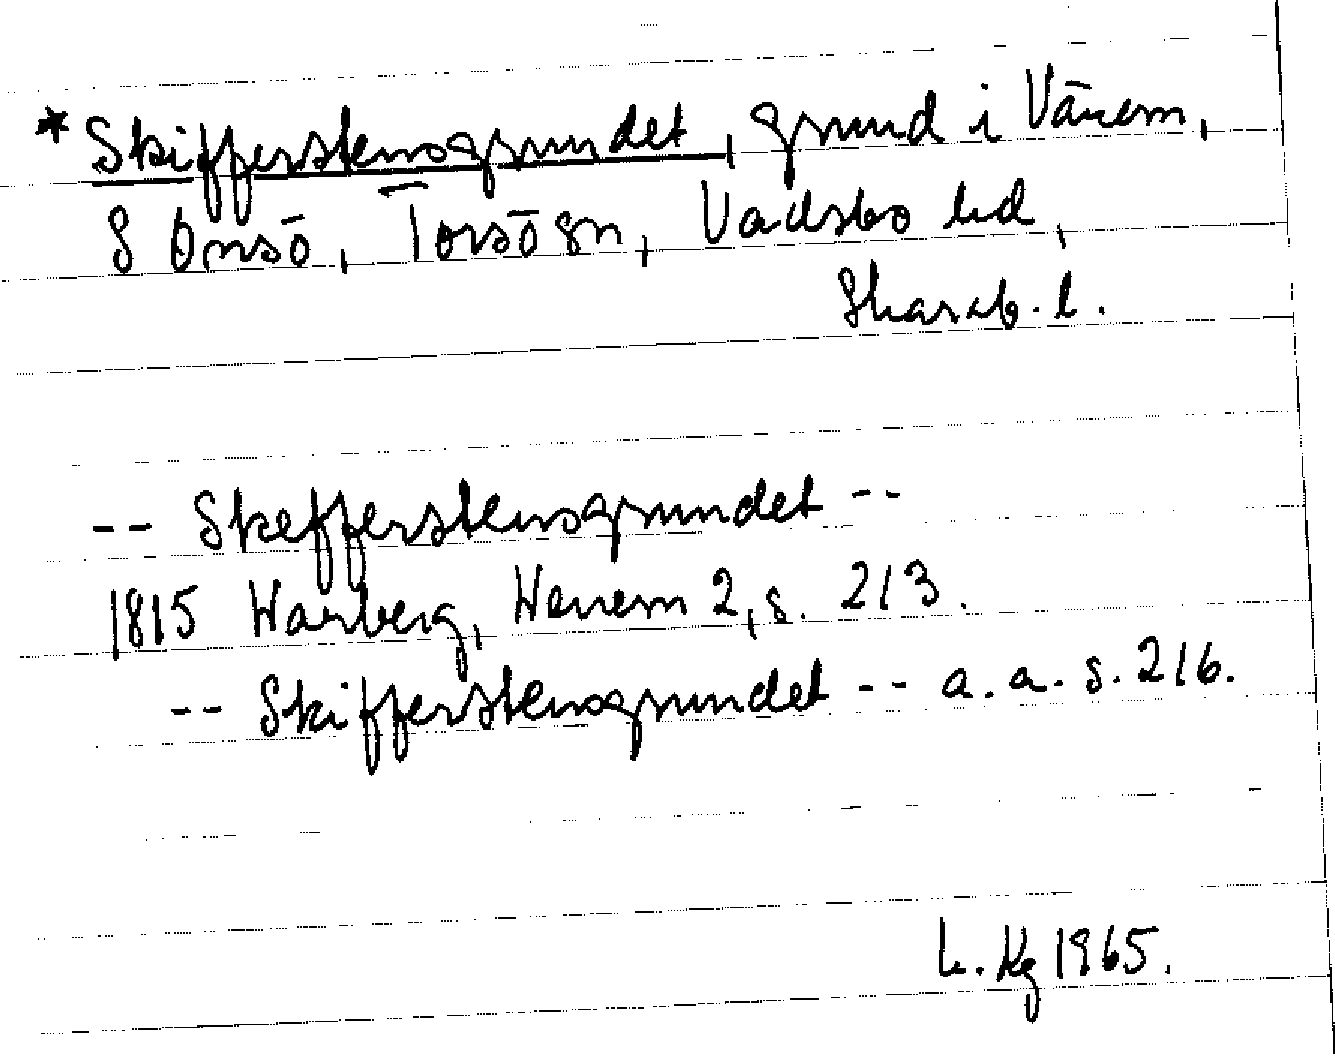 * Skifferstensgrundet, grund i Vänern,
S Onsö, Torsö sn, Vadsbo hd,
Skarab. l.
-- Skefferstensgrundet --
1815 Warberg, Wenern 2, s. 213.
-- Skifferstensgrundet -- a. a. s. 216.
Kg 1965.